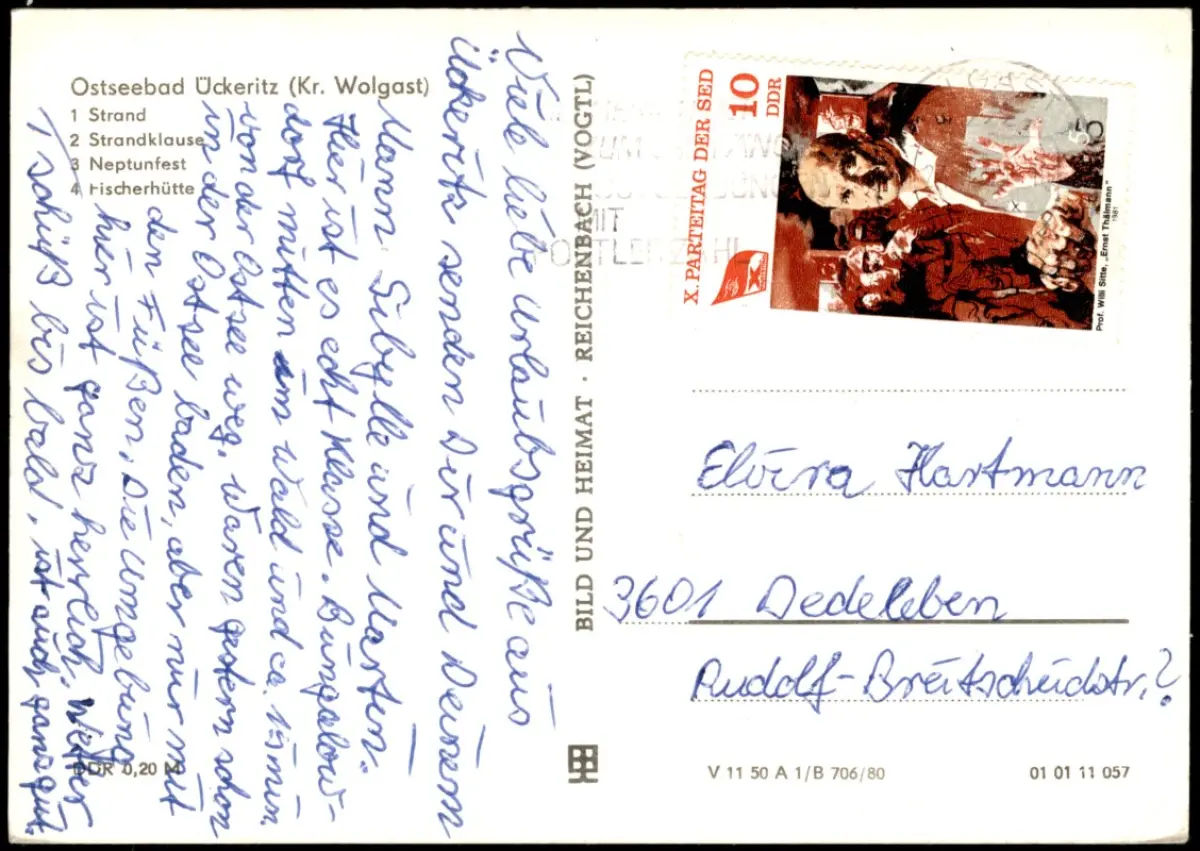 Ostseebad Ückeritz (Kr. Wolgast)
1 Strand
2 Strandklause
3 Neptunfest
4 Fischerhütte
Viele liebe Urlaubsgrüße aus
Ückeritz senden Dir und Deinem
Mann Sibylle und Marten.
Hier ist es echt Klasse. Bungalow-
dorf mitten im Wald und ca. 15 min.
von der Ostsee weg. Waren gestern schon
in der Ostsee baden, aber nur mit
den Füßen. Die Umgebung
hier ist ganz herrlich. Wetter
ist auch ganz gut.
Tschüß bis bald,
DDR 0,20 M
BILD UND HEIMAT · REICHENBACH (VOGTL)
X. PARTEITAG DER SED
10
DDR
Prof. Willi Sitte, „Ernst Thälmann"
1981
MIT
POSTLEITZAHL
Elvira Hartmann
3601 Dedeleben
Rudolf-Breitscheidstr.?
V 11 50 A 1/B 706/80
01 01 11 057